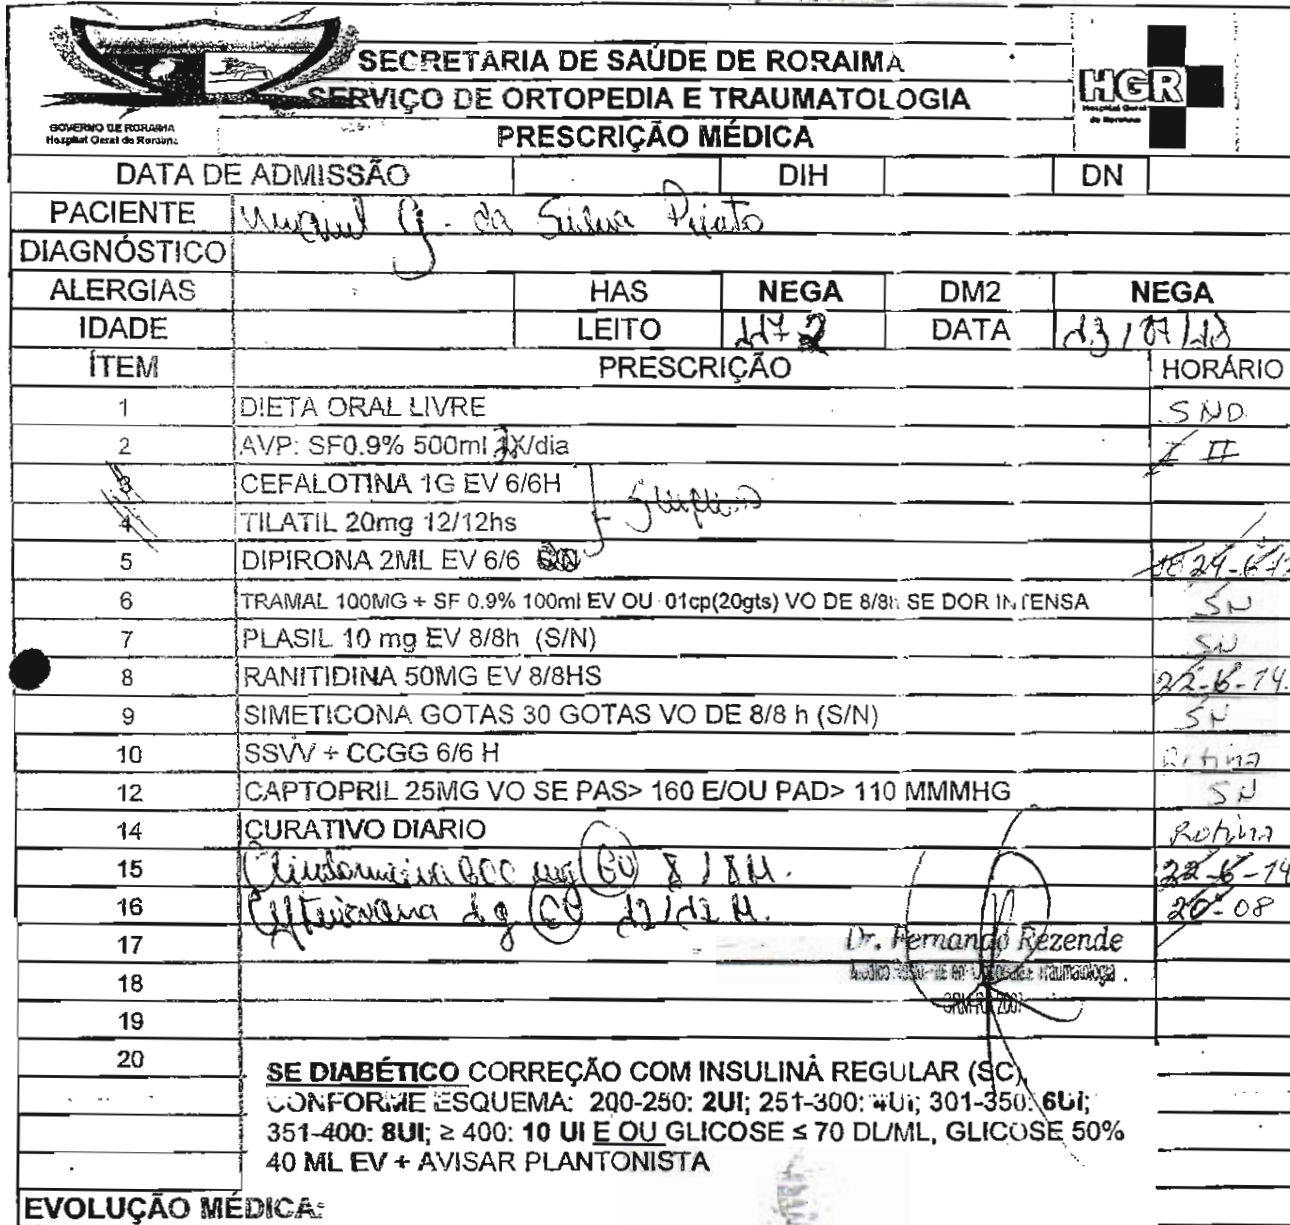 SECRETARIA DE SAÚDE DE RORAIMA
SERVIÇO DE ORTOPEDIA E TRAUMATOLOGIA
PRESCRIÇÃO MÉDICA
GOVERNO DE RORAIMA
Hospital Geral de Roraima
HGR
Hospital Geral
de Roraima
DATA DE ADMISSÃO DIH DN
PACIENTE G. da Silva
DIAGNÓSTICO
ALERGIAS HAS NEGA DM2 NEGA
IDADE LEITO 117-2 DATA
ÍTEM PRESCRIÇÃO HORÁRIO
1 DIETA ORAL LIVRE SND
2 AVP: SF0.9% 500ml X/dia I II
3 CEFALOTINA 1G EV 6/6H
4 TILATIL 20mg 12/12hs
5 DIPIRONA 2ML EV 6/6
6 TRAMAL 100MG + SF 0.9% 100ml EV OU 01cp(20gts) VO DE 8/8h SE DOR INTENSA SN
7 PLASIL 10 mg EV 8/8h (S/N) SN
8 RANITIDINA 50MG EV 8/8HS 22-6-14
9 SIMETICONA GOTAS 30 GOTAS VO DE 8/8 h (S/N) SN
10 SSVV + CCGG 6/6 H Rotina
12 CAPTOPRIL 25MG VO SE PAS> 160 E/OU PAD> 110 MMMHG SN
14 CURATIVO DIARIO Rotina
15 Clindamicina 600 mg EV 8/8H. 22-6-14
16 Ceftriaxona 1g EV 12/12 H. 20-08
17 Dr. Fernando Rezende
18
19
20
SE DIABÉTICO CORREÇÃO COM INSULINA REGULAR (SC)
CONFORME ESQUEMA: 200-250: 2UI; 251-300: 4UI; 301-350: 6UI;
351-400: 8UI; ≥ 400: 10 UI E OU GLICOSE ≤ 70 DL/ML, GLICOSE 50%
40 ML EV + AVISAR PLANTONISTA
EVOLUÇÃO MÉDICA: